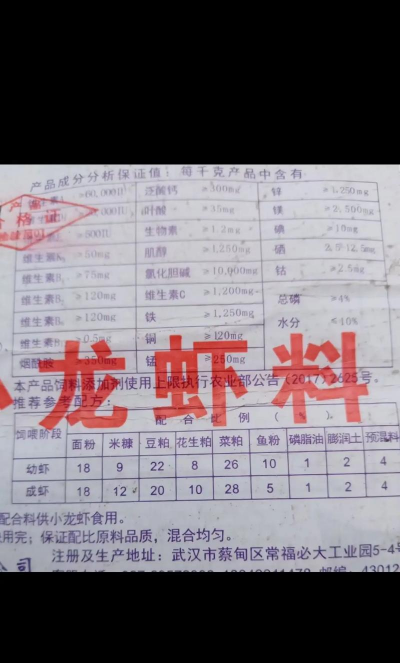 产品成分分析保证值：每千克产品中含有
泛酸钙 ≥300mg 锌 ≥1,250mg
叶酸 ≥35mg 镁 ≥2,500mg
≥500IU 生物素 ≥1.2mg 碘 ≥10mg
≥50mg 肌醇 ≥1,250mg 硒 2.5-12.5mg
维生素B ≥75mg 氯化胆碱 ≥10,000mg 钴 ≥2.5mg
维生素B ≥120mg 维生素C ≥1,200mg 总磷 ≥4%
维生素B ≥120mg 铁 ≥1,250mg 水分 ≤10%
维生素B ≥0.5mg 铜 ≥120mg
烟酰胺 ≥350mg 锰 ≥250mg
合格证
小龙虾料
本产品饲料添加剂使用上限执行农业部公告(2017)2625号。
推荐参考配方：
饲喂阶段 配合比例(%)
面粉 米糠 豆粕 花生粕 菜粕 鱼粉 磷脂油 膨润土 预混料
幼虾 18 9 22 8 26 10 1 2 4
成虾 18 12 20 10 28 5 1 2 4
配合料供小龙虾食用。
用完；保证配比原料品质，混合均匀。
公司 注册及生产地址：武汉市蔡甸区常福必大工业园5-4号